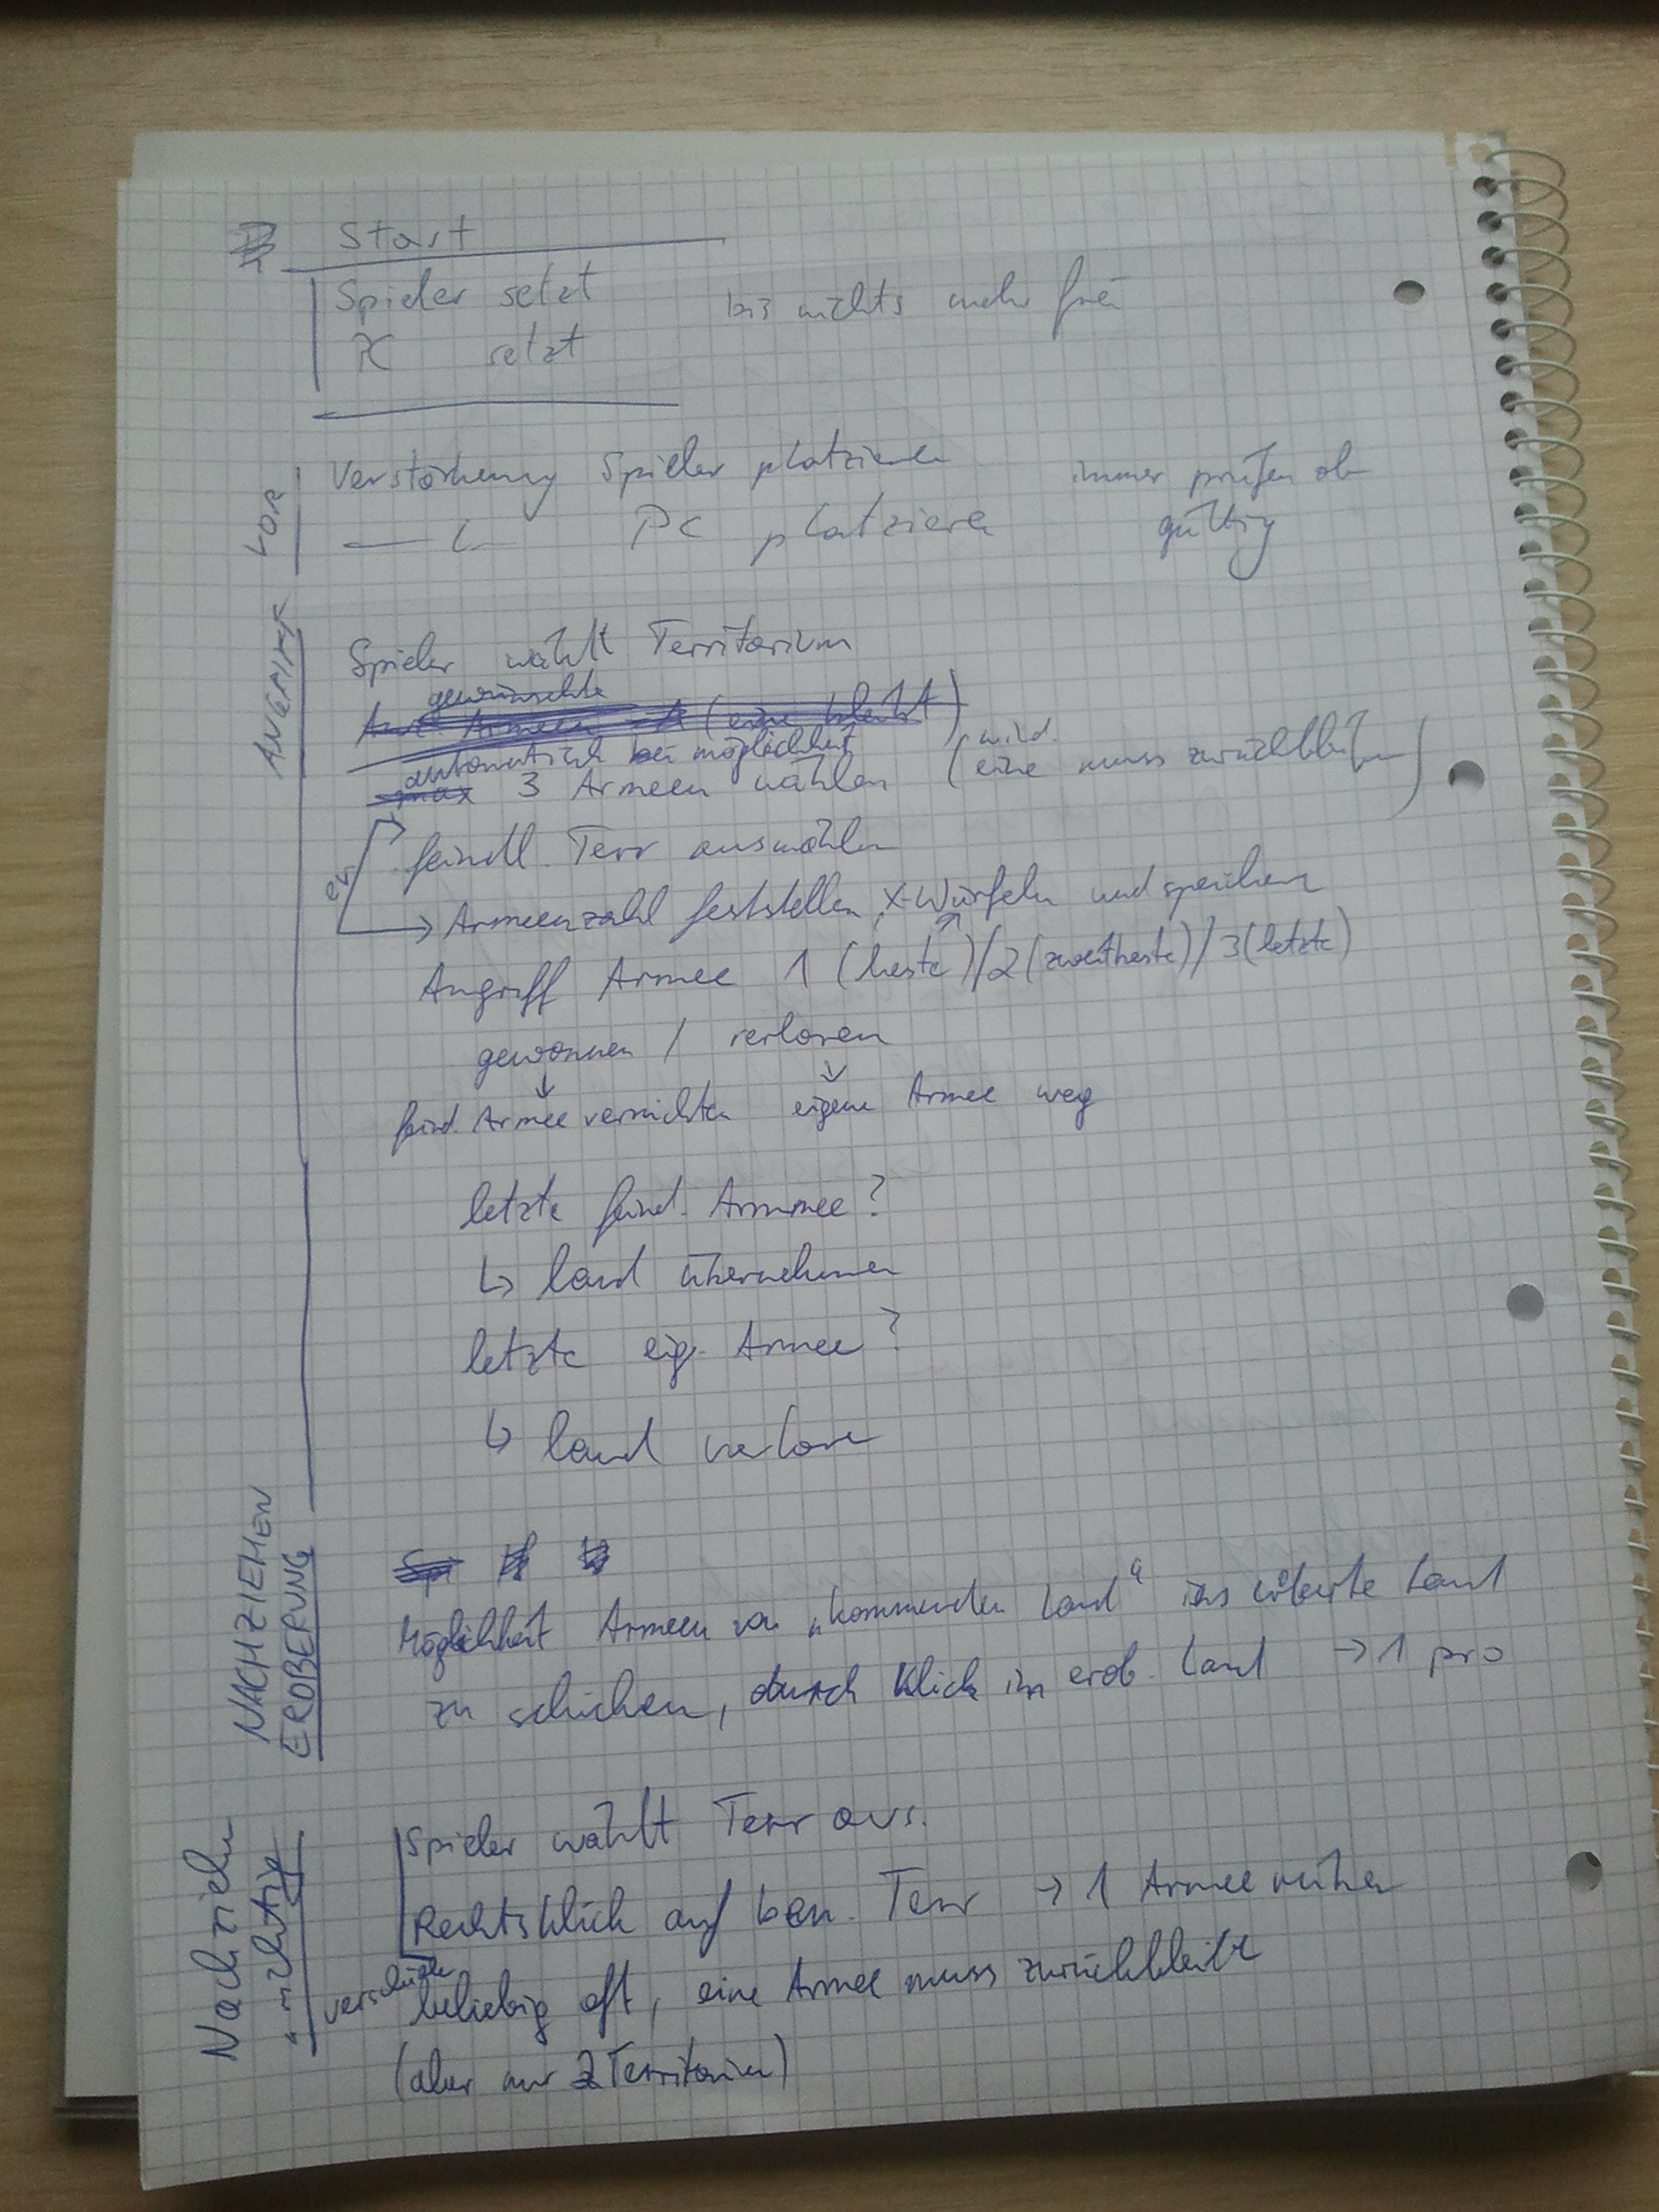 Start
Spieler setzt bis nichts mehr frei
PC setzt
VOR
Verstärkung Spieler platzieren immer prüfen ob
PC platzieren gültig
ANGRIFF
Spieler wählt Territorium
gewünschte
Armeen (eine bleibt)
automatisch bei möglichkeit
max 3 Armeen wählen (mind. eine muss zurückbleiben)
feindl. Terr auswählen
ev.
→ Armeenzahl feststellen, X-Würfeln und speichern
Angriff Armee 1 (beste) / 2 (zweitbeste) / 3 (letzte)
gewonnen / verloren
↓ ↓
feind. Armee vernichten eigene Armee weg
letzte feind. Armmee?
↳ land übernehmen
letzte eig. Armee?
↳ land verloren
NACHZIEHEN
EROBERUNG
Möglichkeit Armeen von „kommenden Land“ ins eroberte Land
zu schicken, durch Klick im erob. Land → 1 pro
Nachziehen
Spieler wählt Terr aus.
Rechtsklick auf ben. Terr → 1 Armee rüber
verschieben
beliebig oft, eine Armee muss zurückbleiben
(aber nur 2 Territorien)